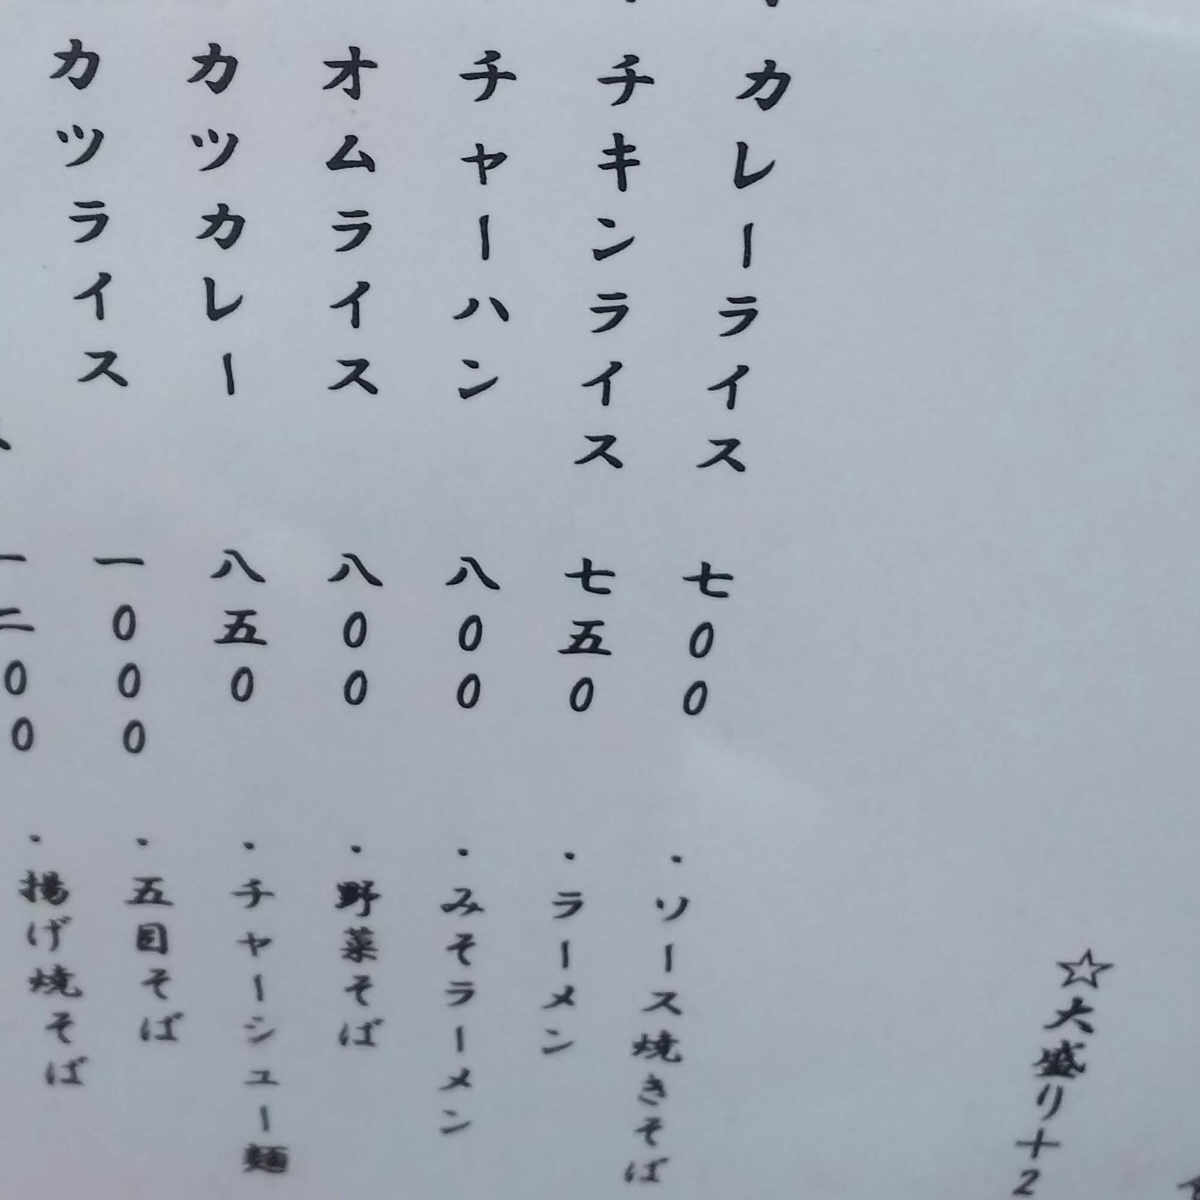 ☆大盛り+2
・カレーライス 七00
・チキンライス 七五0
チャーハン 八00
オムライス 八00
カツカレー 八五0
カツライス 一000
一二00
・ソース焼きそば
・ラーメン
・みそラーメン
・野菜そば
・チャーシュー麺
・五目そば
・揚げ焼そば